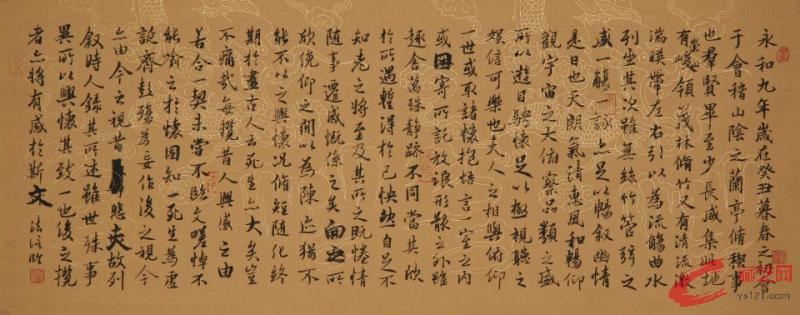 永和九年歲在癸丑暮春之初會
于會稽山陰之蘭亭脩稧事
也羣賢畢至少長咸集此地
有崇山峻領茂林脩竹又有清流激
湍暎帶左右引以為流觴曲水
列坐其次雖無絲竹管弦之
盛一觴一詠亦足以暢敘幽情
是日也天朗氣清惠風和暢仰
觀宇宙之大俯察品類之盛
所以遊目騁懷足以極視聽之
娛信可樂也夫人之相與俯仰
一世或取諸懷抱悟言一室之內
或因寄所託放浪形骸之外雖
趣舍萬殊靜躁不同當其欣
於所遇蹔得於己怏然自足不
知老之將至及其所之既惓情
隨事遷感慨係之矣向之所
欣俛仰之間以為陳迹猶不
能不以之興懷況脩短隨化終
期於盡古人云死生亦大矣豈
不痛哉每攬昔人興感之由
若合一契未嘗不臨文嗟悼不
能喻之於懷固知一死生為虛
誕齊彭殤為妄作後之視今
亦由今之視昔悲夫故列
敘時人錄其所述雖世殊事
異所以興懷其致一也後之攬
者亦將有感於斯文
ys121.com